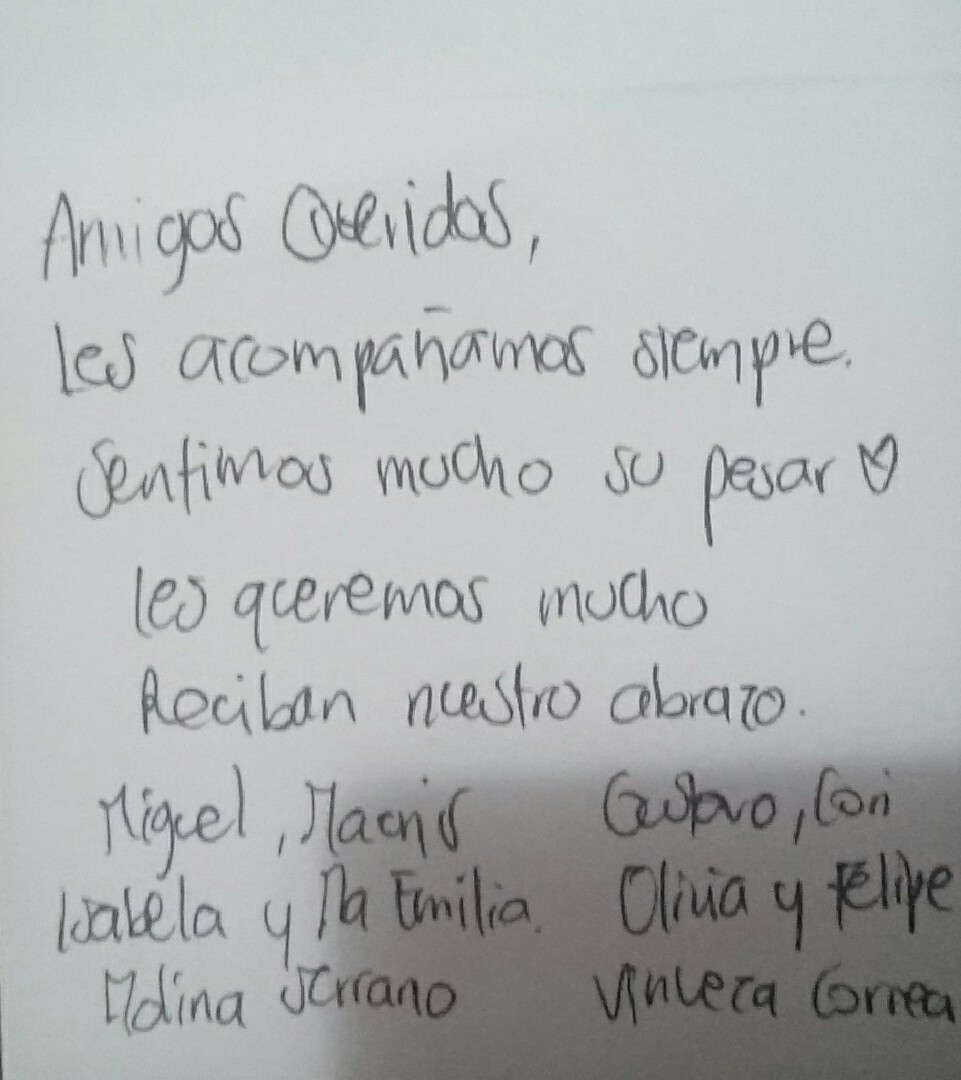 Amigos Queridos,
les acompañamos siempre.
Sentimos mucho su pesar ♡
les queremos mucho
Reciban nuestro abrazo.
Miguel, Gustavo, Cori
Isabela y Ma Emilia. Olivia y Felipe
Molina Serrano Correa